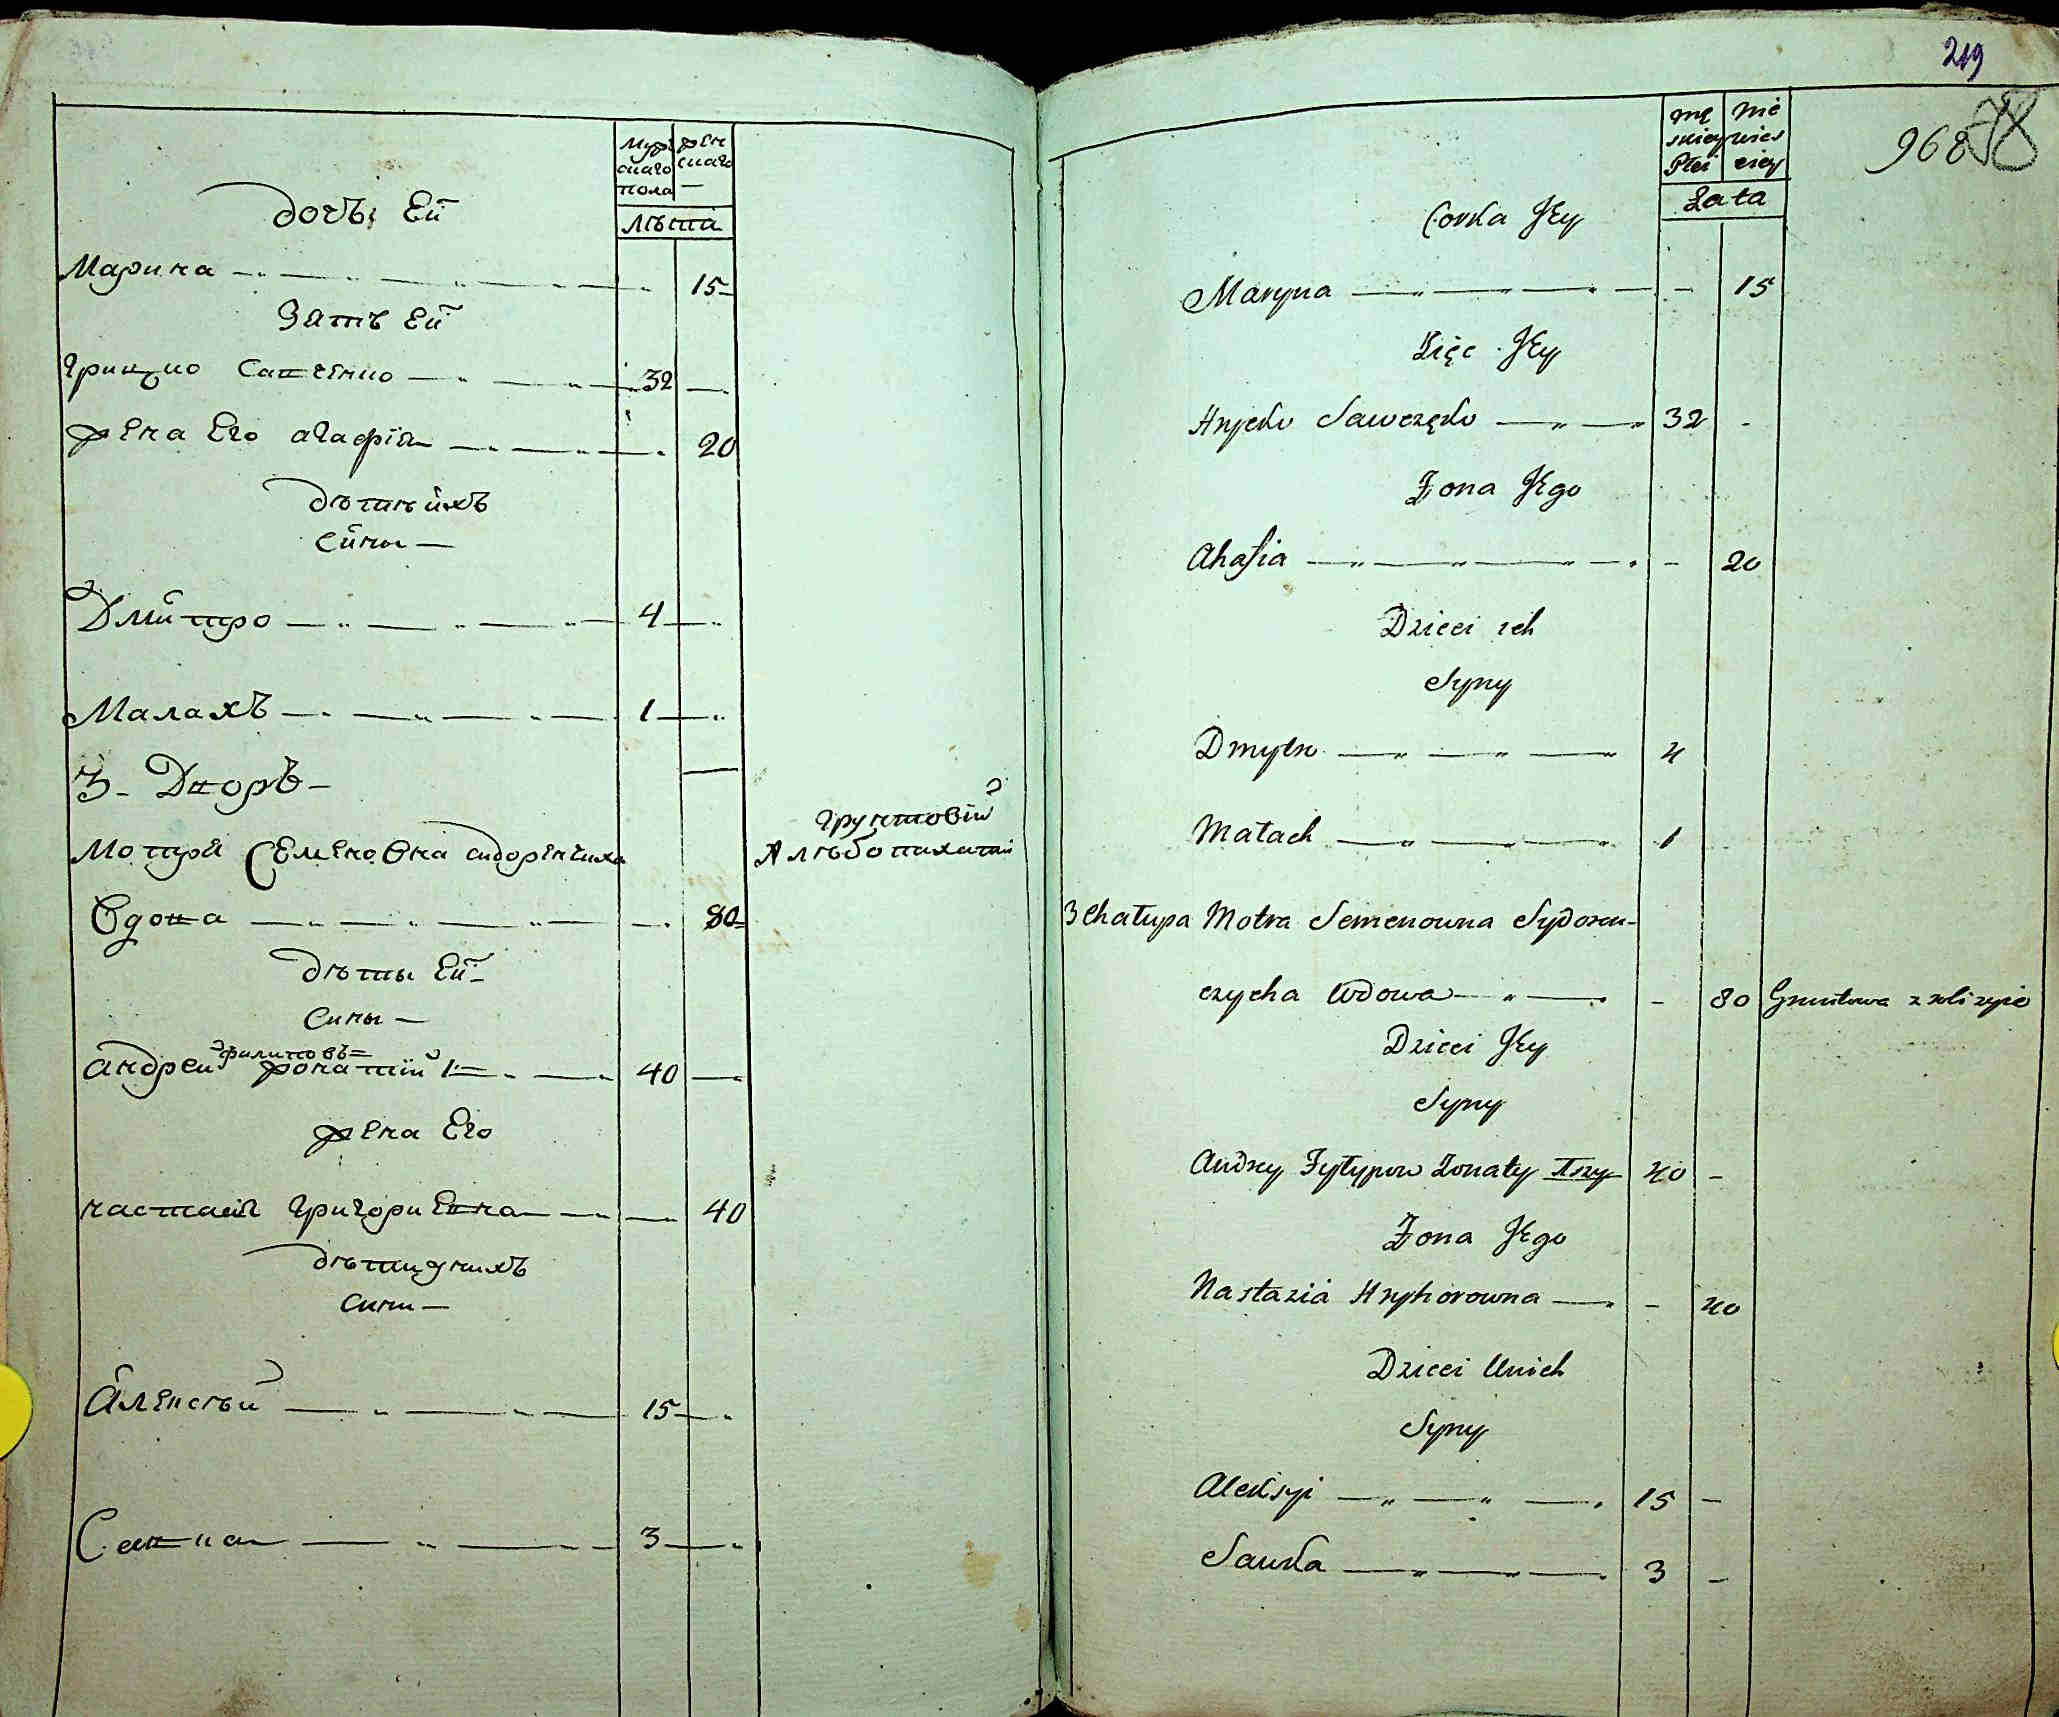 мужскаго пола женскаго
лѣта
дочъ Ей
Марина 15
Зять Ей
Грицко Савченко 32
Жена Его Агафия 20
дѣти ихъ
Сины
Дмитро 4
Малахъ 1
3 Дворъ
Мотря Семеновна Сидоренчиха
Вдова 80
грунтовий
хлѣбопахатній
дѣти Ей
Сины
Андрей Филиповъ Жонатий 1 40
Жена Его
Настасия Григориевна 40
дѣти у них
Сини
Алексѣй 15
Савка 3
219
968
Męskiey Płci Niewiesciey
Lata
Corka Jey
Maryna 15
Zięc Jey
Hryćko Sawczęko 32
Zona Jego
Ahafia 20
Dzieci ich
Syny
Dmytro 4
Małach 1
3 Chałupa Motra Semenowna Sydoren-
czycha Wdowa 80 Gruntowa
Dzieci Jey
Syny
Andrey Fyłypow Zonaty 1szy 40
Zona Jego
Nastazia Hryhorowna 40
Dzieci Unich
Syny
Aleksyi 15
Sawka 3